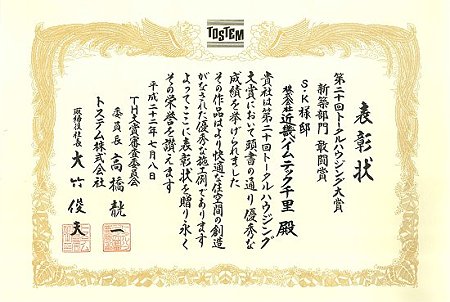 TOSTEM
表彰状
第二十回トータルハウジング大賞
新築部門 敢闘賞
S・K様邸
株式会社 近畿ハイムニック千里 殿
貴社は第二十回トータルハウジング
大賞において頭書の通り優秀な
成績を挙げられました
その作品はより快適な住空間の創造
がなされた優秀な施工例であります
よってここに表彰状を贈り永く
その栄誉を讃えます
平成二十二年七月八日
TH大賞審査委員会
委員長 高橋 龍一
トステム株式会社
取締役社長 大竹俊夫